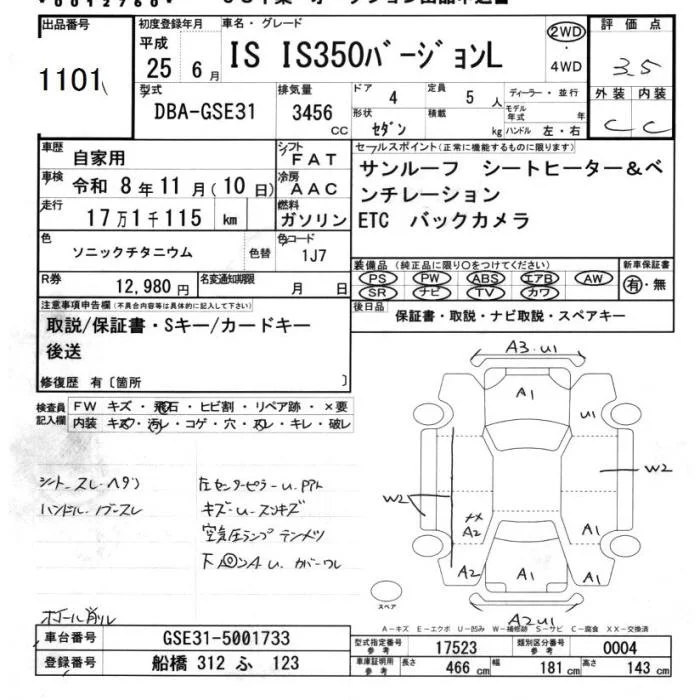 出品番号
1101
初度登録年月
平成
25 年 6 月
車名・グレード
IS IS350バージョンL
2WD
・
4WD
評価点
3.5
外装 内装
C C
型式
DBA-GSE31
排気量
3456
CC
ドア 4
定員 5 人
形状 セダン
積載 kg
ディーラー・並行
モデル年式 年
ハンドル 左・右
車歴
自家用
シフト
FAT
車検
令和 8 年 11 月 ( 10 日)
冷房
AAC
走行
17 万 1 千 115 km
燃料
ガソリン
色
ソニックチタニウム
色替
色コード
1J7
R券
12,980 円
名変通知期限
月 日
セールスポイント(正常に機能するものに限ります)
サンルーフ シートヒーター&ベ
ンチレーション
ETC バックカメラ
装備品 (純正品に限り〇をつけてください)
PS PW ABS エアB AW
SR ナビ TV カワ
新車保証書
有・無
後日品
保証書・取説・ナビ取説・スペアキー
注意事項申告欄(不具合内容等は具体的に記入して下さい)
取説/保証書・Sキー/カードキー
後送
修復歴 有〔箇所 〕
検査員
記入欄
FW キズ・飛石・ヒビ割・リペア跡・×要
内装 キズ・汚レ・コゲ・穴・スレ・キレ・破レ
シート.スレ.ヘタリ
ハンドル.ノブ.スレ
左センターピラーU.アト
キズ-U-スンキズ
空気圧ランプテンメツ
下回A U.カバーワレ
ホイール削リ
A3.U1
A1
U1
W2
W2
A2
A1
A2
A1
A1
A2U1
スペア
A-キズ E-エクボ U-凹み W-補修跡 S-サビ C-腐食 XX-交換済
車台番号
GSE31-5001733
登録番号
船橋 312 ふ 123
型式指定番号
参考
17523
類別区分番号
参考
0004
車庫証明用
参考
長さ 466 cm 幅 181 cm 高さ 143 cm